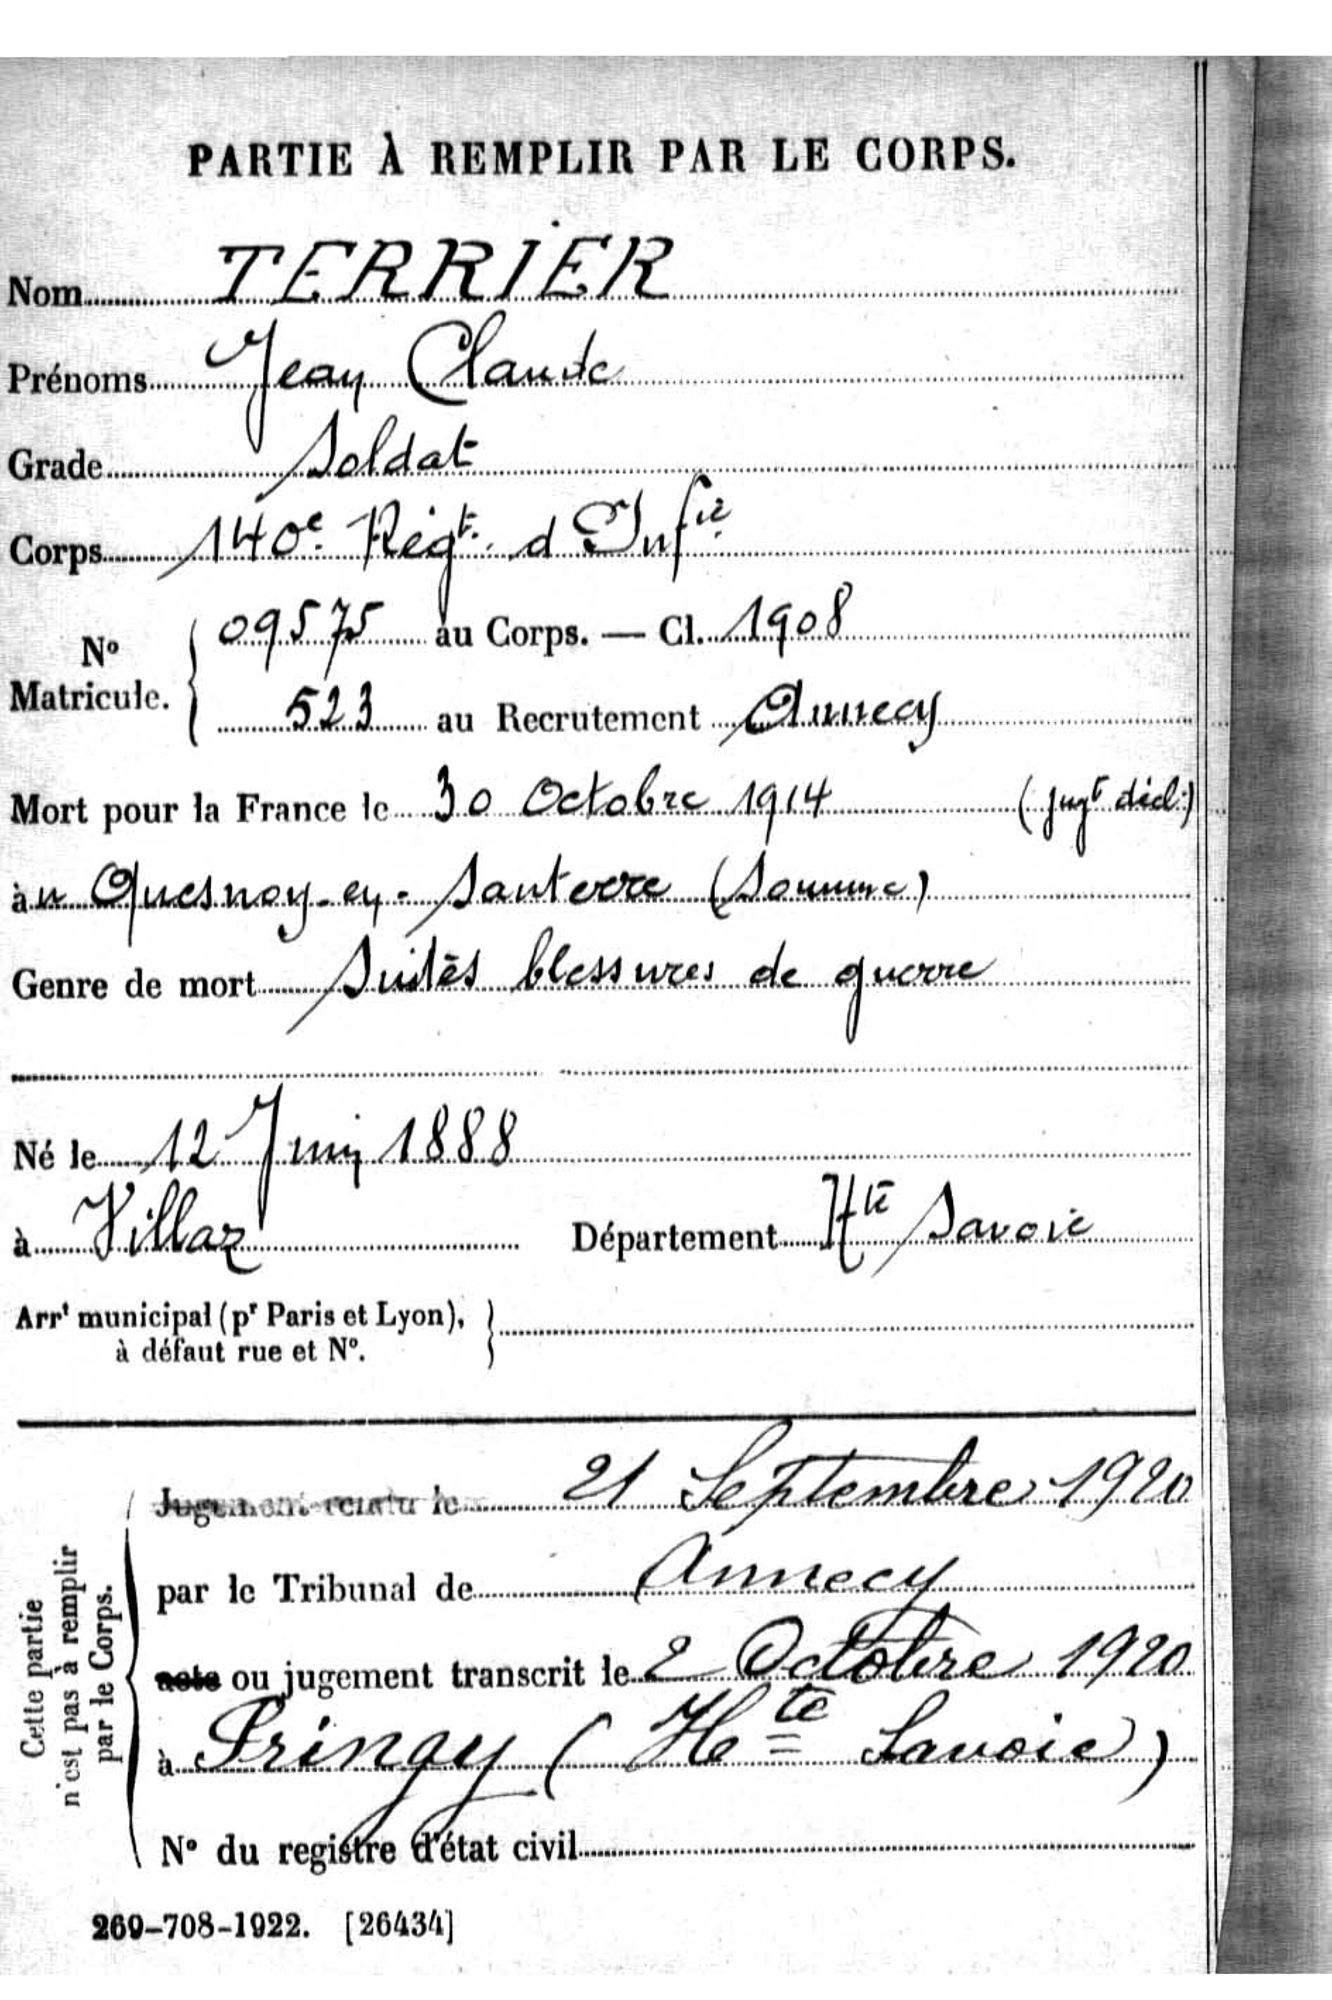 PARTIE À REMPLIR PAR LE CORPS.
Nom TERRIER
Prénoms Jean Claude
Grade Soldat
Corps 140e Régt. d Infie
No Matricule. { 09575 au Corps. — Cl. 1908
523 au Recrutement Annecy
Mort pour la France le 30 Octobre 1914 (jugt décl.)
à u Quesnoy-en-Santerre (Somme)
Genre de mort Suites blessures de guerre
Né le 12 Juin 1888
à Villaz Département Hte Savoie
Arrt municipal (pr Paris et Lyon), }
à défaut rue et No.
Cette partie
n'est pas à remplir
par le Corps.
Jugement rendu le 21 Septembre 1920
par le Tribunal de Annecy
acte ou jugement transcrit le 2 Octobre 1920
à Pringy (Hte Savoie)
No du registre d'état civil
269-708-1922. [26434]